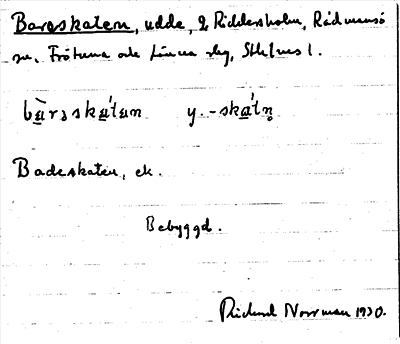 Bareskaten, udde, g Riddersholm, Rådmansö
sn. Frötuna och Länna slg, Sthlms l.
bàrəskátan y. -skátn̥
Badeskaten, ek.
Bebyggd.
Rickard Norrman 1930.